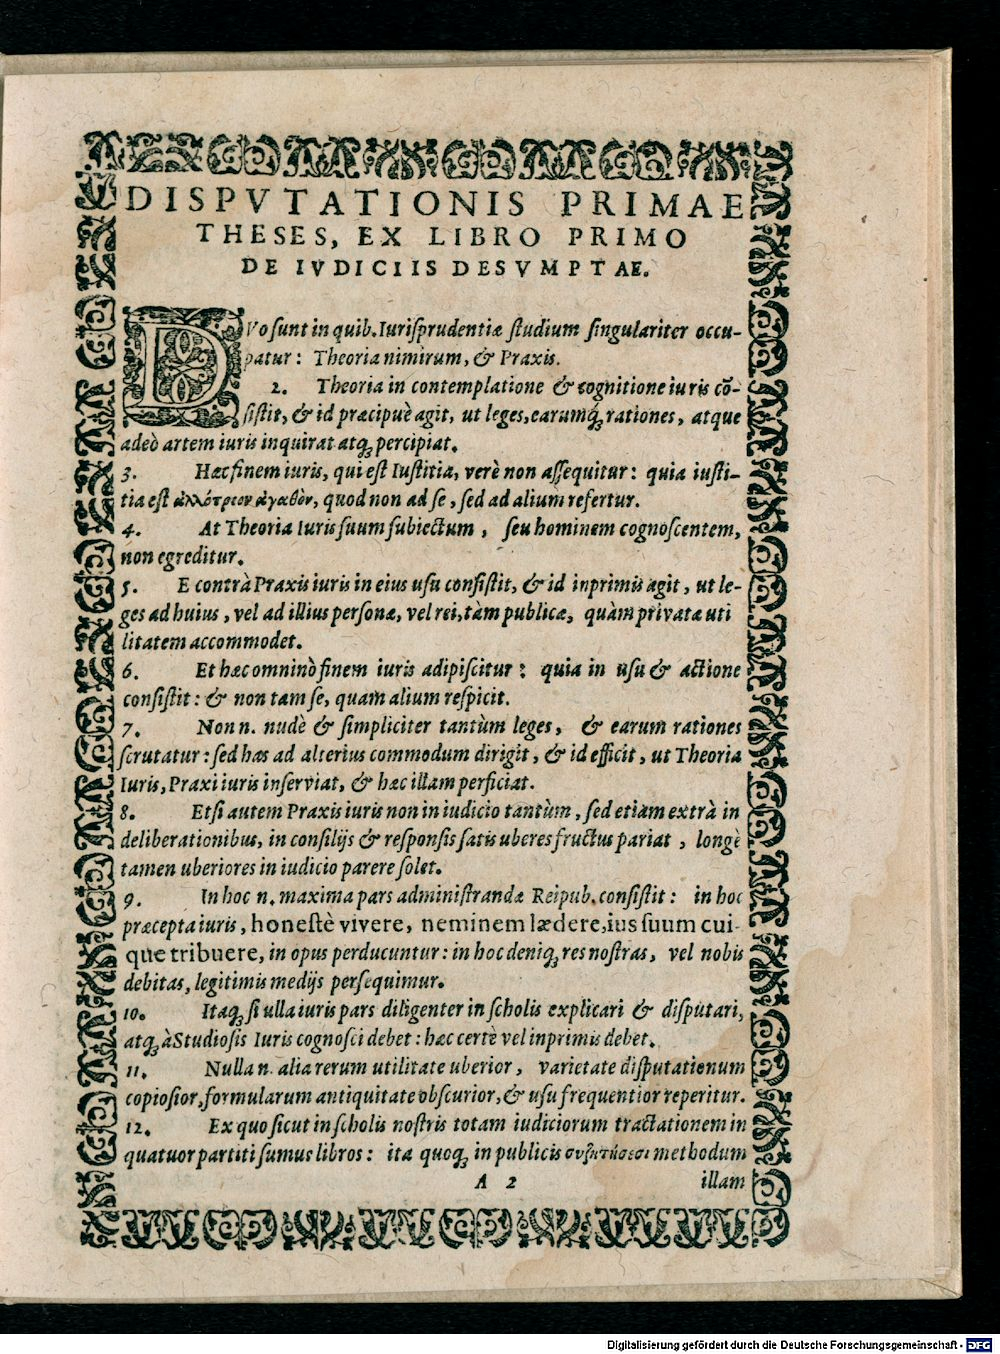 DISPVTATIONIS PRIMAE
THESES, EX LIBRO PRIMO
DE IVDICIIS DESVMPTAE.
DVo sunt in quib. Iurisprudentiæ studium singulariter occu-
patur: Theoria nimirum, & Praxis.
2. Theoria in contemplatione & cognitione iuris cõ-
sistit, & id præcipuè agit, ut leges, earumq́; rationes, atque
adeò artem iuris inquirat atq; percipiat.
3. Hæc finem iuris, qui est Iustitia, verè non assequitur: quia iusti-
tia est ἀλλότριον ἀγαθὸν, quod non ad se, sed ad alium refertur.
4. At Theoria Iuris suum subiectum, seu hominem cognoscentem,
non egreditur.
5. E contrà Praxis iuris in eius usu consistit, & id inprimis agit, ut le-
ges ad huius, vel ad illius personæ, vel rei, tàm publicæ, quàm privatæ uti
litatem accommodet.
6. Et hæc omninò finem iuris adipiscitur: quia in usu & actione
consistit: & non tam se, quam alium respicit.
7. Non n. nudè & simpliciter tantùm leges, & earum rationes
scrutatur: sed has ad alterius commodum dirigit, & id efficit, ut Theoria
Iuris, Praxi iuris inserviat, & hæc illam perficiat.
8. Etsi autem Praxis iuris non in iudicio tantùm, sed etiam extrà in
deliberationibus, in consilijs & responsis satis uberes fructus pariat, longè
tamen uberiores in iudicio parere solet.
9. In hoc n. maxima pars administrandæ Reipub. consistit: in hoc
præcepta iuris, honestè vivere, neminem lædere, ius suum cui-
que tribuere, in opus perducuntur: in hoc deniq; res nostras, vel nobis
debitas, legitimis medijs persequimur.
10. Itaq; si ulla iuris pars diligenter in scholis explicari & disputari,
atq; à Studiosis Iuris cognosci debet: hæc certè vel inprimis debet.
11. Nulla n. alia rerum utilitate uberior, varietate disputationum
copiosior, formularum antiquitate obscurior, & usu frequentior reperitur.
12. Ex quo sicut in scholis nostris totam iudiciorum tractationem in
quatuor partiti sumus libros: ita quoq; in publicis συζητήσεσι methodum
A 2 illam
Digitalisierung gefördert durch die Deutsche Forschungsgemeinschaft - DFG